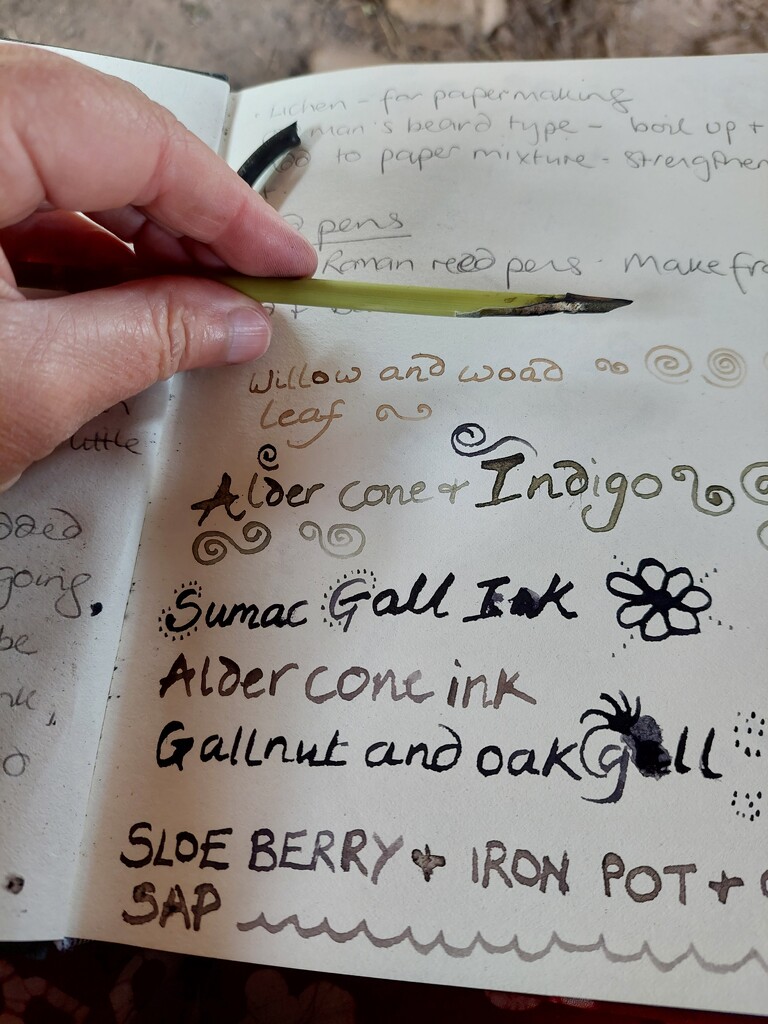 little
going,
be
· Lichen - for papermaking
man's beard type - boil up +
to paper mixture - strengthen
pens
Roman reed pens. Make fro
Willow and woad
leaf
Alder cone + Indigo
Sumac Gall Ink
Alder cone ink
Gallnut and oak gall
SLOE BERRY + IRON POT +
SAP